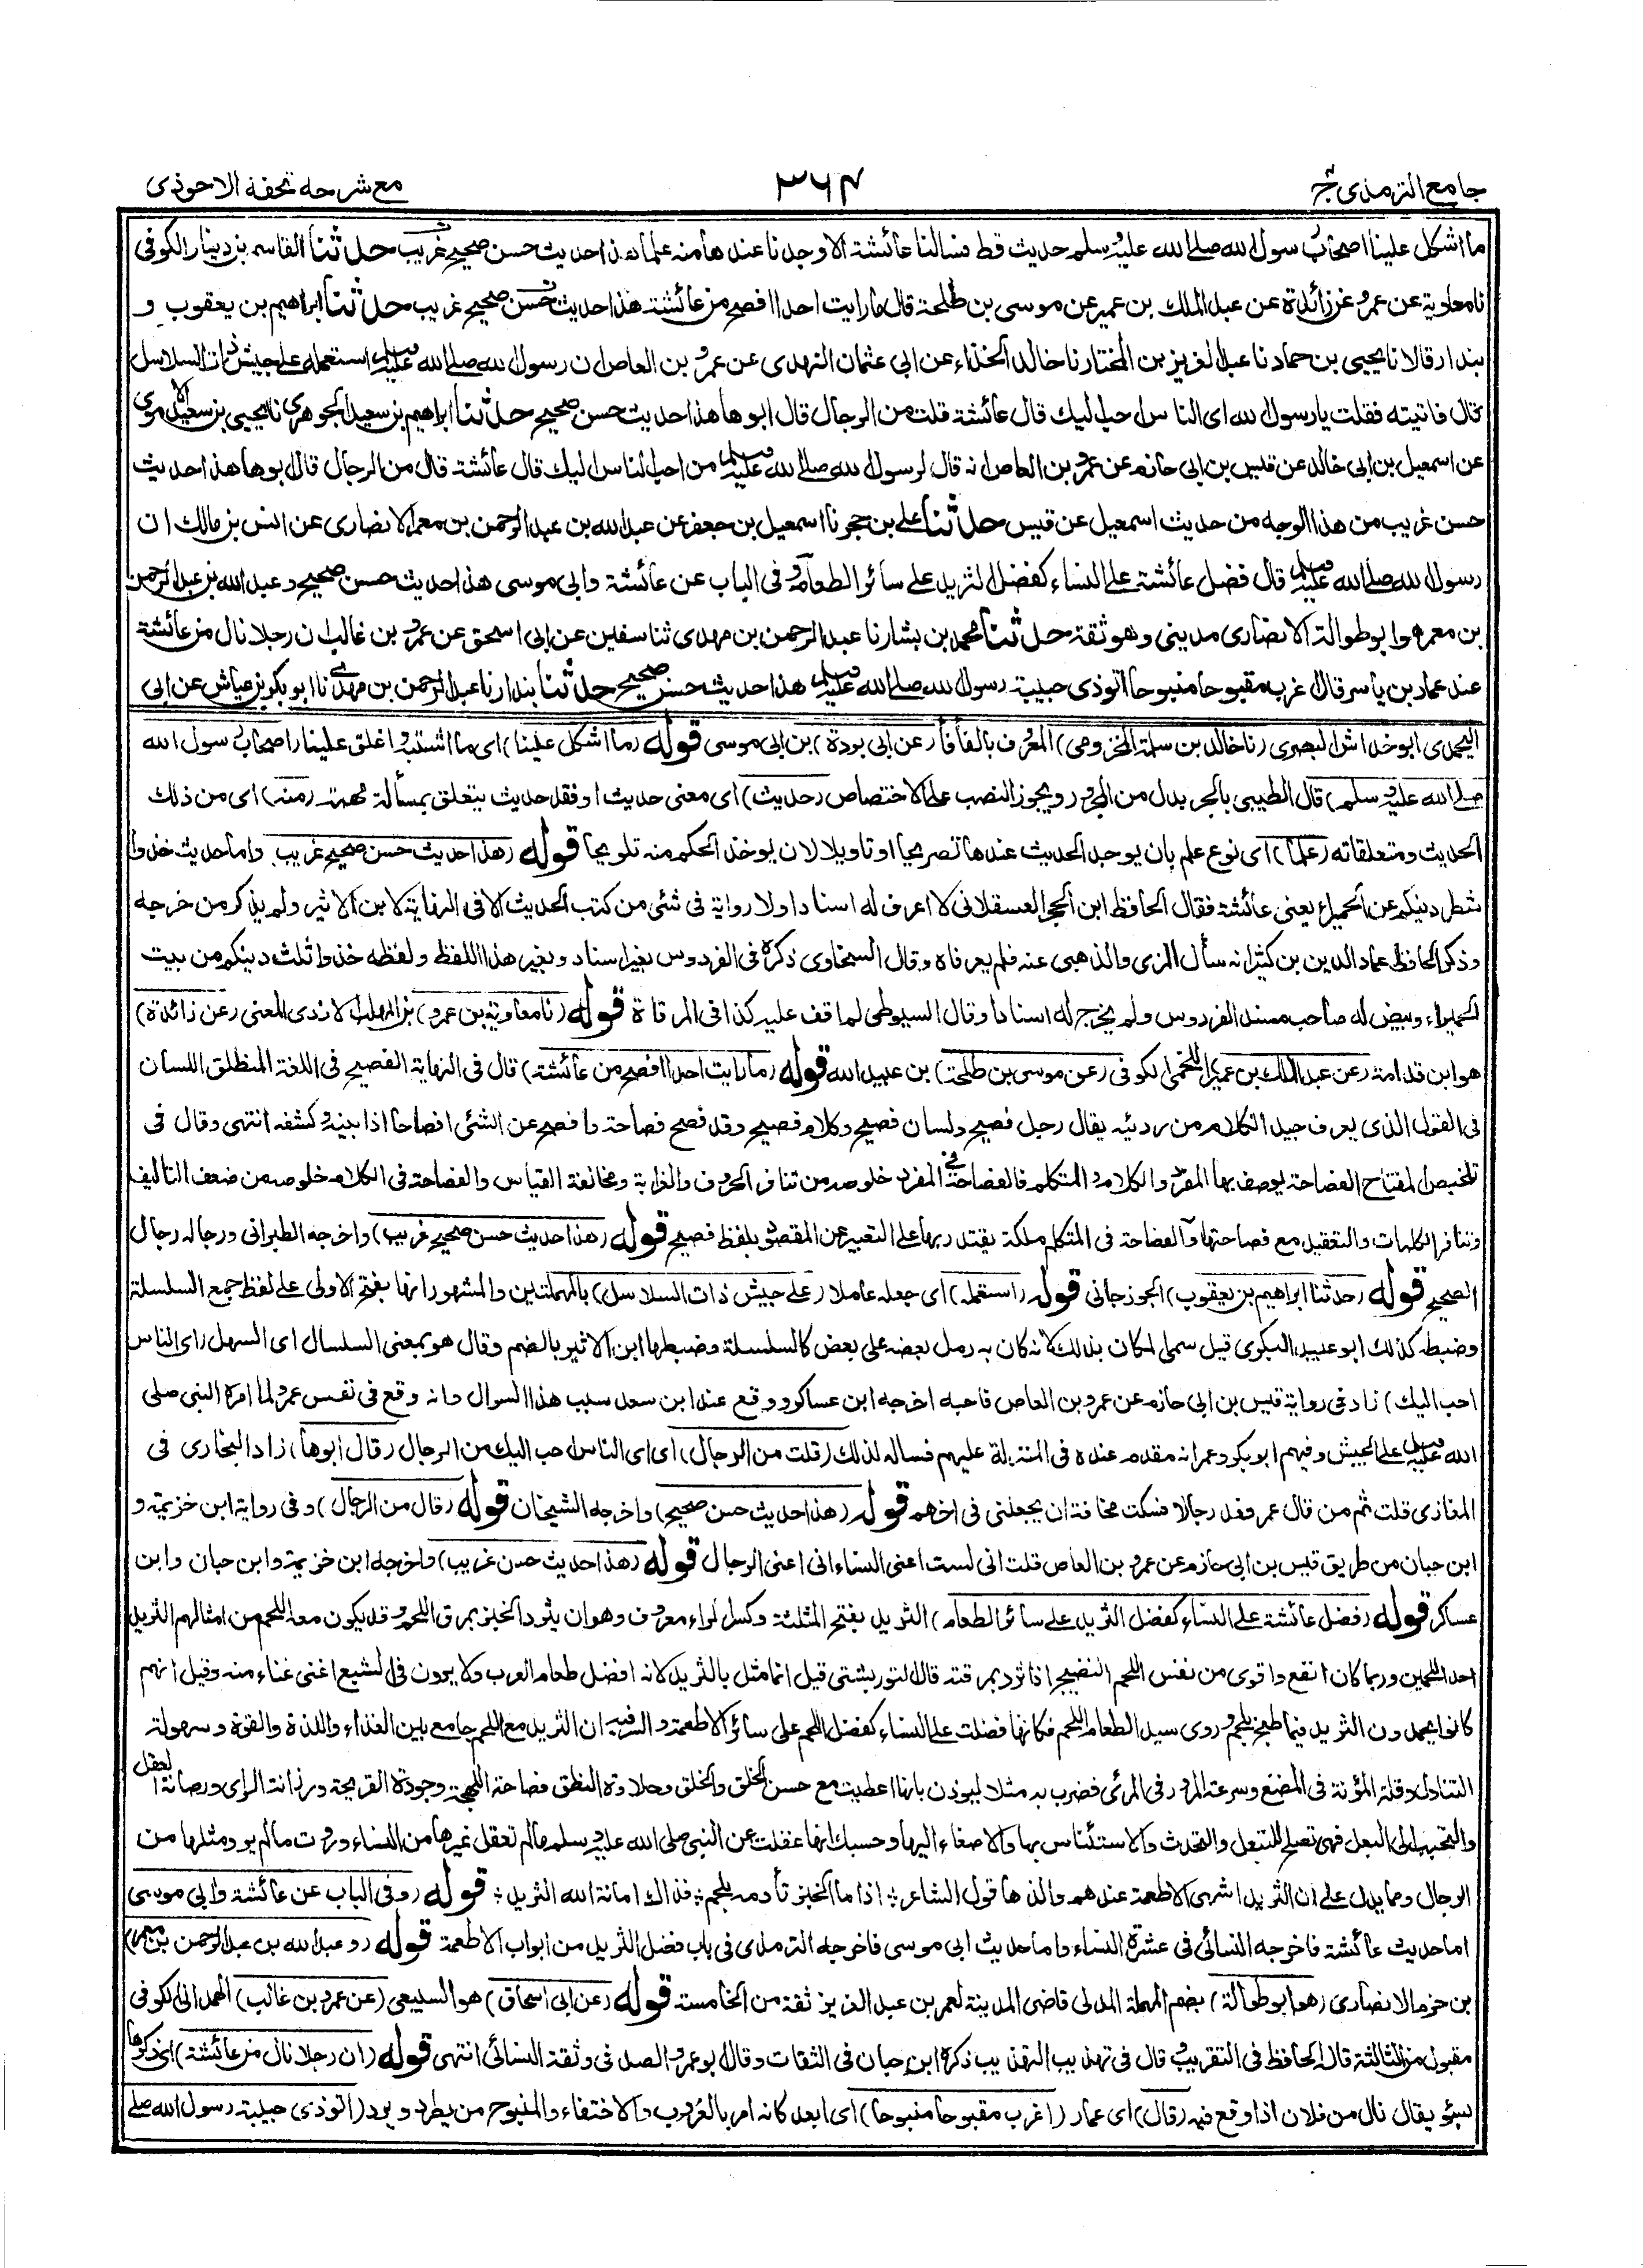 جامع الترمذی ج۴
۳۶۴
مع شرحه تحفة الاحوذی
ما اشکل علینا اصحاب رسول الله صلی الله علیه وسلم حدیث قط فسالنا عائشة الا وجدنا عندها منه علما هذا حدیث حسن صحیح غریب حدثنا القاسم بن دینار الکوفی
نا معاویة عن عمرو عن زائدة عن عبد الملک بن عمیر عن موسی بن طلحة قال ما رایت احدا افصح من عائشة هذا حدیث حسن صحیح غریب حدثنا ابراهیم بن یعقوب و
بندار قالا نا یحیی بن حماد نا عبد العزیز بن المختار نا خالد الحذاء عن ابی عثمان النهدی عن عمرو بن العاص ان رسول الله صلی الله علیه وسلم استعمله علی جیش ذات السلاسل
قال فاتیته فقلت یا رسول الله ای الناس احب الیک قال عائشة قلت من الرجال قال ابوها هذا حدیث حسن صحیح حدثنا ابراهیم بن سعید الجوهری نا یحیی بن سعید الاموی
عن اسمعیل بن ابی خالد عن قیس بن ابی حازم عن عمرو بن العاص انه قال لرسول الله صلی الله علیه وسلم من احب الناس الیک قال عائشة قال من الرجال قال ابوها هذا حدیث
حسن غریب من هذا الوجه من حدیث اسمعیل عن قیس حدثنا علی بن حجر نا اسمعیل بن جعفر عن عبد الله بن عبد الرحمن بن معمر الانصاری عن انس بن مالک ان
رسول الله صلی الله علیه وسلم قال فضل عائشة علی النساء کفضل الثرید علی سائر الطعام وفی الباب عن عائشة وابی موسی هذا حدیث حسن صحیح وعبد الله بن عبد الرحمن
بن معمر هو ابو طوالة الانصاری مدینی وهو ثقة حدثنا محمد بن بشار نا عبد الرحمن بن مهدی ثنا سفین عن ابی اسحق عن عمرو بن غالب ان رجلا نال من عائشة
عند عمار بن یاسر قال اغرب مقبوحا منبوحا اتوذی حبیبة رسول الله صلی الله علیه وسلم هذا حدیث حسن صحیح حدثنا بندار نا عبد الرحمن بن مهدی نا ابو بکر بن عیاش عن ابی
الیحمدی ابو خداش البصری (نا خالد بن سلمة المخزومی) المعروف بالفأفأ (عن ابی بردة) بن ابی موسی قوله (ما اشکل علینا) ای ما اشتبه و اغلق علینا (اصحاب رسول الله
صلی الله علیه وسلم) قال الطیبی بالجر بدل من المجرور ویجوز النصب علی الاختصاص (حدیث) ای معنی حدیث او فقد حدیث یتعلق بمسألة مهمة (منه) ای من ذلک
الحدیث ومتعلقاته (علما) ای نوع علم بان یوجد الحدیث عندها تصریحا او تاویلا لان یوخذ الحکم منه تلویحا قوله (هذا حدیث حسن صحیح غریب) واما حدیث خذوا
شطر دینکم عن الحمیراء یعنی عائشة فقال الحافظ ابن الحجر العسقلانی لا اعرف له اسنادا ولا روایة فی شئی من کتب الحدیث الا فی النهایة لابن الاثیر ولم یذکر من خرجه
وذکر الحافظ عماد الدین بن کثیر انه سأل المزی والذهبی عنه فلم یعرفاه وقال السخاوی ذکره فی الفردوس بغیر اسناد وبغیر هذا اللفظ ولفظه خذوا ثلث دینکم من بیت
الحمیراء وبیض له صاحب مسند الفردوس ولم یخرج له اسنادا وقال السیوطی لم اقف علیه کذا فی المرقاة قوله (نا معاویة بن عمرو) بن المهلب الازدی المعنی (عن زائدة)
هو ابن قدامة (عن عبد الملک بن عمیر) اللخمی الکوفی (عن موسی بن طلحة) بن عبید الله قوله (ما رایت احدا افصح من عائشة) قال فی النهایة الفصیح فی اللغة المنطلق اللسان
فی القول الذی یعرف جید الکلام من ردئیه یقال رجل فصیح ولسان فصیح وکلام فصیح وقد فصح فصاحة وافصح عن الشئی افصاحا اذا بینه وکشفه انتهی وقال فی
تلخیص المفتاح الفصاحة یوصف بها المفرد والکلام والمتکلم فالفصاحة فی المفرد خلوصه من تنافر الحروف والغرابة ومخالفة القیاس والفصاحة فی الکلام خلوصه من ضعف التالیف
وتنافر الکلمات والتعقید مع فصاحتها والفصاحة فی المتکلم ملکة یقتدر بها علی التعبیر عن المقصود بلفظ فصیح قوله (هذا حدیث حسن صحیح غریب) واخرجه الطبرانی ورجاله رجال
الصحیح قوله (حدثنا ابراهیم بن یعقوب) الجوزجانی قوله (استعمله) ای جعله عاملا (علی جیش ذات السلاسل) بالمهملتین والمشهور انها بفتح الاولی علی لفظ جمع السلسلة
وضبطه کذلک ابو عبید البکری قیل سمی المکان بذلک لانه کان به رمل بعضه علی بعض کالسلسلة وضبطها ابن الاثیر بالضم وقال هو بمعنی السلسال ای السهل (ای الناس
احب الیک) زاد فی روایة قیس بن ابی حازم عن عمرو بن العاص فاحبه اخرجه ابن عساکر ووقع عند ابن سعد سبب هذا السوال وانه وقع فی نفس عمرو لما امره النبی صلی
الله علیه وسلم علی الجیش وفیهم ابو بکر وعمر انه مقدم عنده فی المنزلة علیهم فساله لذلک (قلت من الرجال) ای ای الناس احب الیک من الرجال (قال ابوها) زاد البخاری فی
المغازی قلت ثم من قال عمر فعد رجالا فسکت مخافة ان یجعلنی فی اخرهم قوله (هذا حدیث حسن صحیح) واخرجه الشیخان قوله (قال من الرجال) وفی روایة ابن خزیمة و
ابن حبان من طریق قیس بن ابی حازم عن عمرو بن العاص قلت انی لست اعنی النساء انی اعنی الرجال قوله (هذا حدیث حسن غریب) واخرجه ابن خزیمة وابن حبان وابن
عساکر قوله (فضل عائشة علی النساء کفضل الثرید علی سائر الطعام) الثرید بفتح المثلثة وکسر الراء معروف وهو ان یثرد الخبز بمرق اللحم وقد یکون معه اللحم من امثالهم الثرید
احد اللحمین وربما کان انفع واقوی من نفس اللحم النضیج اذا ثرد بمرقته قال التوربشتی قیل انما مثل بالثرید لانه افضل طعام العرب ولا یرون فی الشبع اغنی غناء منه وقیل انهم
کانوا یحمدون الثرید فیما طبخ بلحم وروی سید الطعام اللحم فکانها فضلت علی النساء کفضل اللحم علی سائر الاطعمة والسر فیه ان الثرید مع اللحم جامع بین الغذاء واللذة والقوة وسهولة
التناول وقلة المؤنة فی المضغ وسرعة المرور فی المرئ فضرب به مثلا لیوذن بانها اعطیت مع حسن الخلق والخلق وحلاوة النطق فصاحة اللهجة وجودة القریحة ورزانة الرای ورصانة العقل
والتحبب الی البعل فهی تصلح للتبعل والتحدث والاستئناس بها والاصغاء الیها وحسبک انها عقلت عن النبی صلی الله علیه وسلم ما لم تعقل غیرها من النساء وروت ما لم یرو مثلها من
الرجال ومما یدل علی ان الثرید اشهی الاطعمة عندهم والذها قول الشاعر؛ اذا ما الخبز تأدمه بلحم؛ فذاک امانة الله الثرید؛ قوله (وفی الباب عن عائشة وابی موسی)
اما حدیث عائشة فاخرجه النسائی فی عشرة النساء واما حدیث ابی موسی فاخرجه الترمذی فی باب فضل الثرید من ابواب الاطعمة قوله (وعبد الله بن عبد الرحمن بن معمر)
بن حزم الانصاری (هو ابو طوالة) بضم المهملة المدنی قاضی المدینة لعمر بن عبد العزیز ثقة من الخامسة قوله (عن ابی اسحاق) هو السبیعی (عن عمرو بن غالب) الهمدانی الکوفی
مقبول من الثالثة قاله الحافظ فی التقریب وقال فی تهذیب التهذیب ذکره ابن حبان فی الثقات وقال ابو عمرو الصدفی وثقه النسائی انتهی قوله (ان رجلا نال من عائشة) ای ذکرها
بسوء یقال نال من فلان اذا وقع فیه (قال) ای عمار (اغرب مقبوحا منبوحا) ای ابعد کانه امر بالغروب والاختفاء والمنبوح من یطرد و یرد (اتوذی حبیبة رسول الله صلی